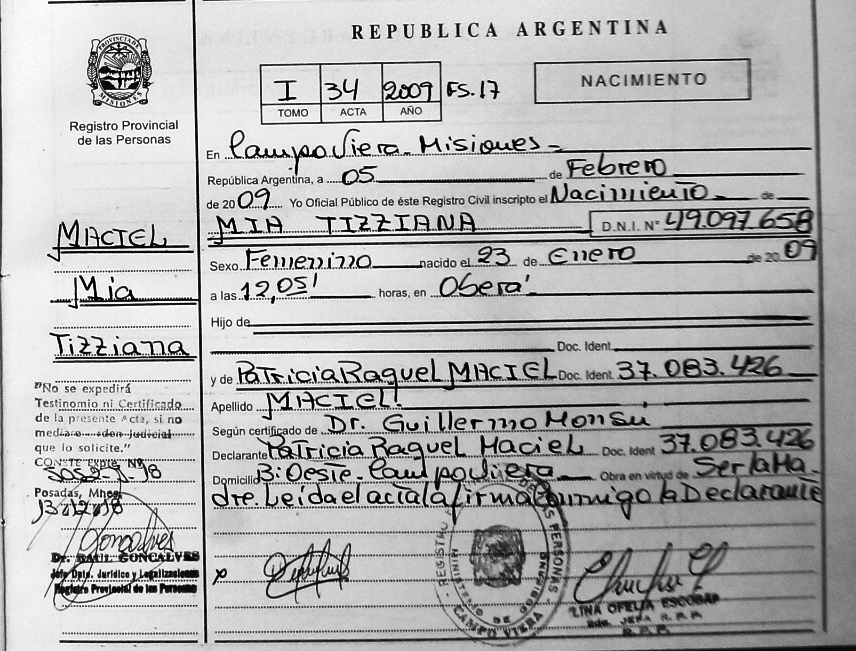 REPUBLICA ARGENTINA
PROVINCIA DE MISIONES
Registro Provincial
de las Personas
I 34 2009 FS.17
TOMO ACTA AÑO
NACIMIENTO
En Campo Viera - Misiones -
República Argentina, a 05 de Febrero
de 2009 Yo Oficial Público de éste Registro Civil inscripto el Nacimiento de
MIA TIZZIANA D.N.I. N° 49.097.658
Sexo Femenino nacido el 23 de Enero de 2009
a las 12,05' horas, en Oberá
Hijo de
Doc. Ident.
y de Patricia Raquel MACIEL Doc. Ident. 37.083.426
Apellido MACIEL
Según certificado de Dr. Guillermo Monsú
Declarante Patricia Raquel Maciel Doc. Ident 37.083.426
Domicilio B: Oeste - Campo Viera Obra en virtud de Ser la Ma-
dre. Leida el acta la firma conmigo la Declarante
MACIEL
Mia
Tizziana
"No se expedirá
Testimonio ni Certificado
de la presente Acta, si no
mediare orden judicial
que lo solicite."
CONSTE Expte. Nº
Posadas, Mnes.
Goncalves
Dr. RAUL GONCALVES
Jefe Dpto. Jurídico y Legalizaciones
Registro Provincial de las Personas
x
REGISTRO DE LAS PERSONAS
MINISTERIO DE GOBIERNO
CAMPO VIERA
LINA OFELIA ESCOBAR
JEFA R.P.P.
R.P.P.